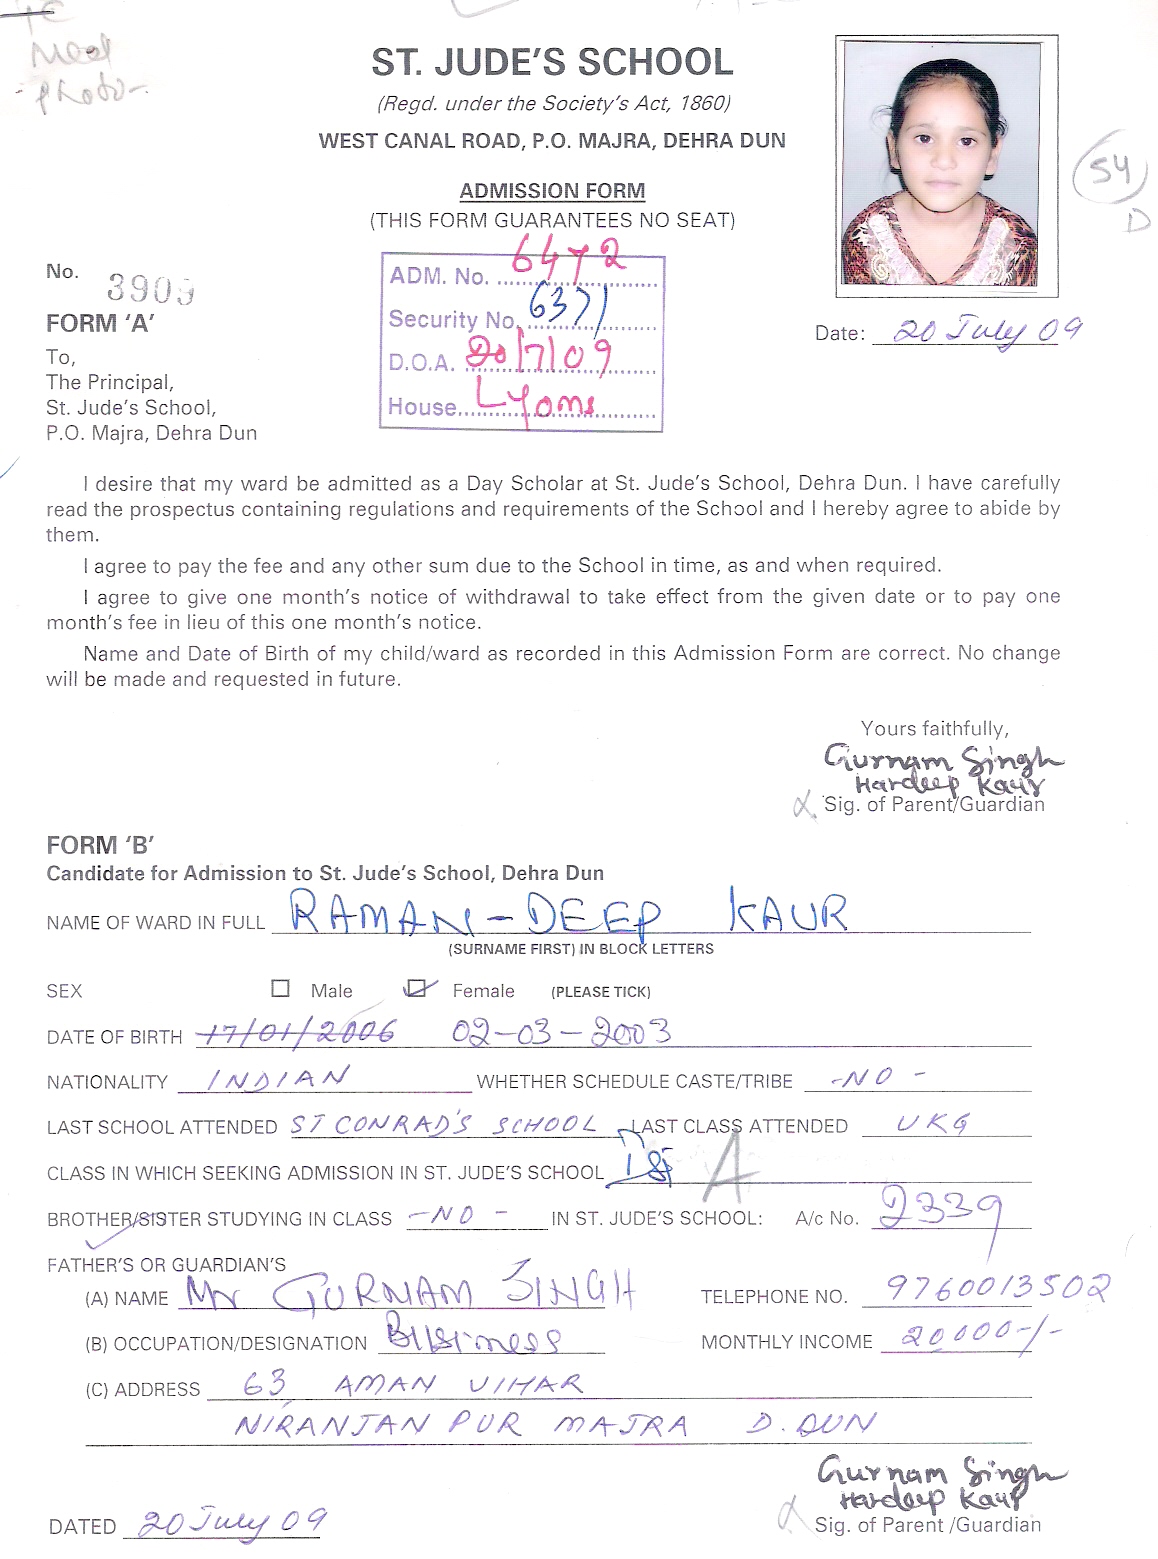 TC
Need
-photo-.
ST. JUDE'S SCHOOL
(Regd. under the Society's Act, 1860)
WEST CANAL ROAD, P.O. MAJRA, DEHRA DUN
ADMISSION FORM
(THIS FORM GUARANTEES NO SEAT)
54
D
No. 3909
ADM. No. 6472
Security No. 6371
D.O.A. 20/7/09
House Lyons
FORM 'A'
Date: 20 July 09
To,
The Principal,
St. Jude's School,
P.O. Majra, Dehra Dun
I desire that my ward be admitted as a Day Scholar at St. Jude's School, Dehra Dun. I have carefully
read the prospectus containing regulations and requirements of the School and I hereby agree to abide by
them.
I agree to pay the fee and any other sum due to the School in time, as and when required.
I agree to give one month's notice of withdrawal to take effect from the given date or to pay one
month's fee in lieu of this one month's notice.
Name and Date of Birth of my child/ward as recorded in this Admission Form are correct. No change
will be made and requested in future.
Yours faithfully,
Gurnam Singh
Hardeep Kaur
Sig. of Parent/Guardian
FORM 'B'
Candidate for Admission to St. Jude's School, Dehra Dun
NAME OF WARD IN FULL RAMAN-DEEP KAUR
(SURNAME FIRST) IN BLOCK LETTERS
SEX Male Female (PLEASE TICK)
DATE OF BIRTH 17/01/2006 02-03-2003
NATIONALITY INDIAN WHETHER SCHEDULE CASTE/TRIBE -NO-
LAST SCHOOL ATTENDED ST CONRAD'S SCHOOL LAST CLASS ATTENDED UKG
CLASS IN WHICH SEEKING ADMISSION IN ST. JUDE'S SCHOOL Ist A
BROTHER/SISTER STUDYING IN CLASS -NO- IN ST. JUDE'S SCHOOL: A/c No. 2339
FATHER'S OR GUARDIAN'S
(A) NAME Mr GURNAM SINGH TELEPHONE NO. 9760013502
(B) OCCUPATION/DESIGNATION Business MONTHLY INCOME 20000-/-
(C) ADDRESS 63 AMAN VIHAR
NIRANJAN PUR MAJRA D. DUN
Gurnam Singh
Hardeep Kaur
DATED 20 July 09 Sig. of Parent /Guardian